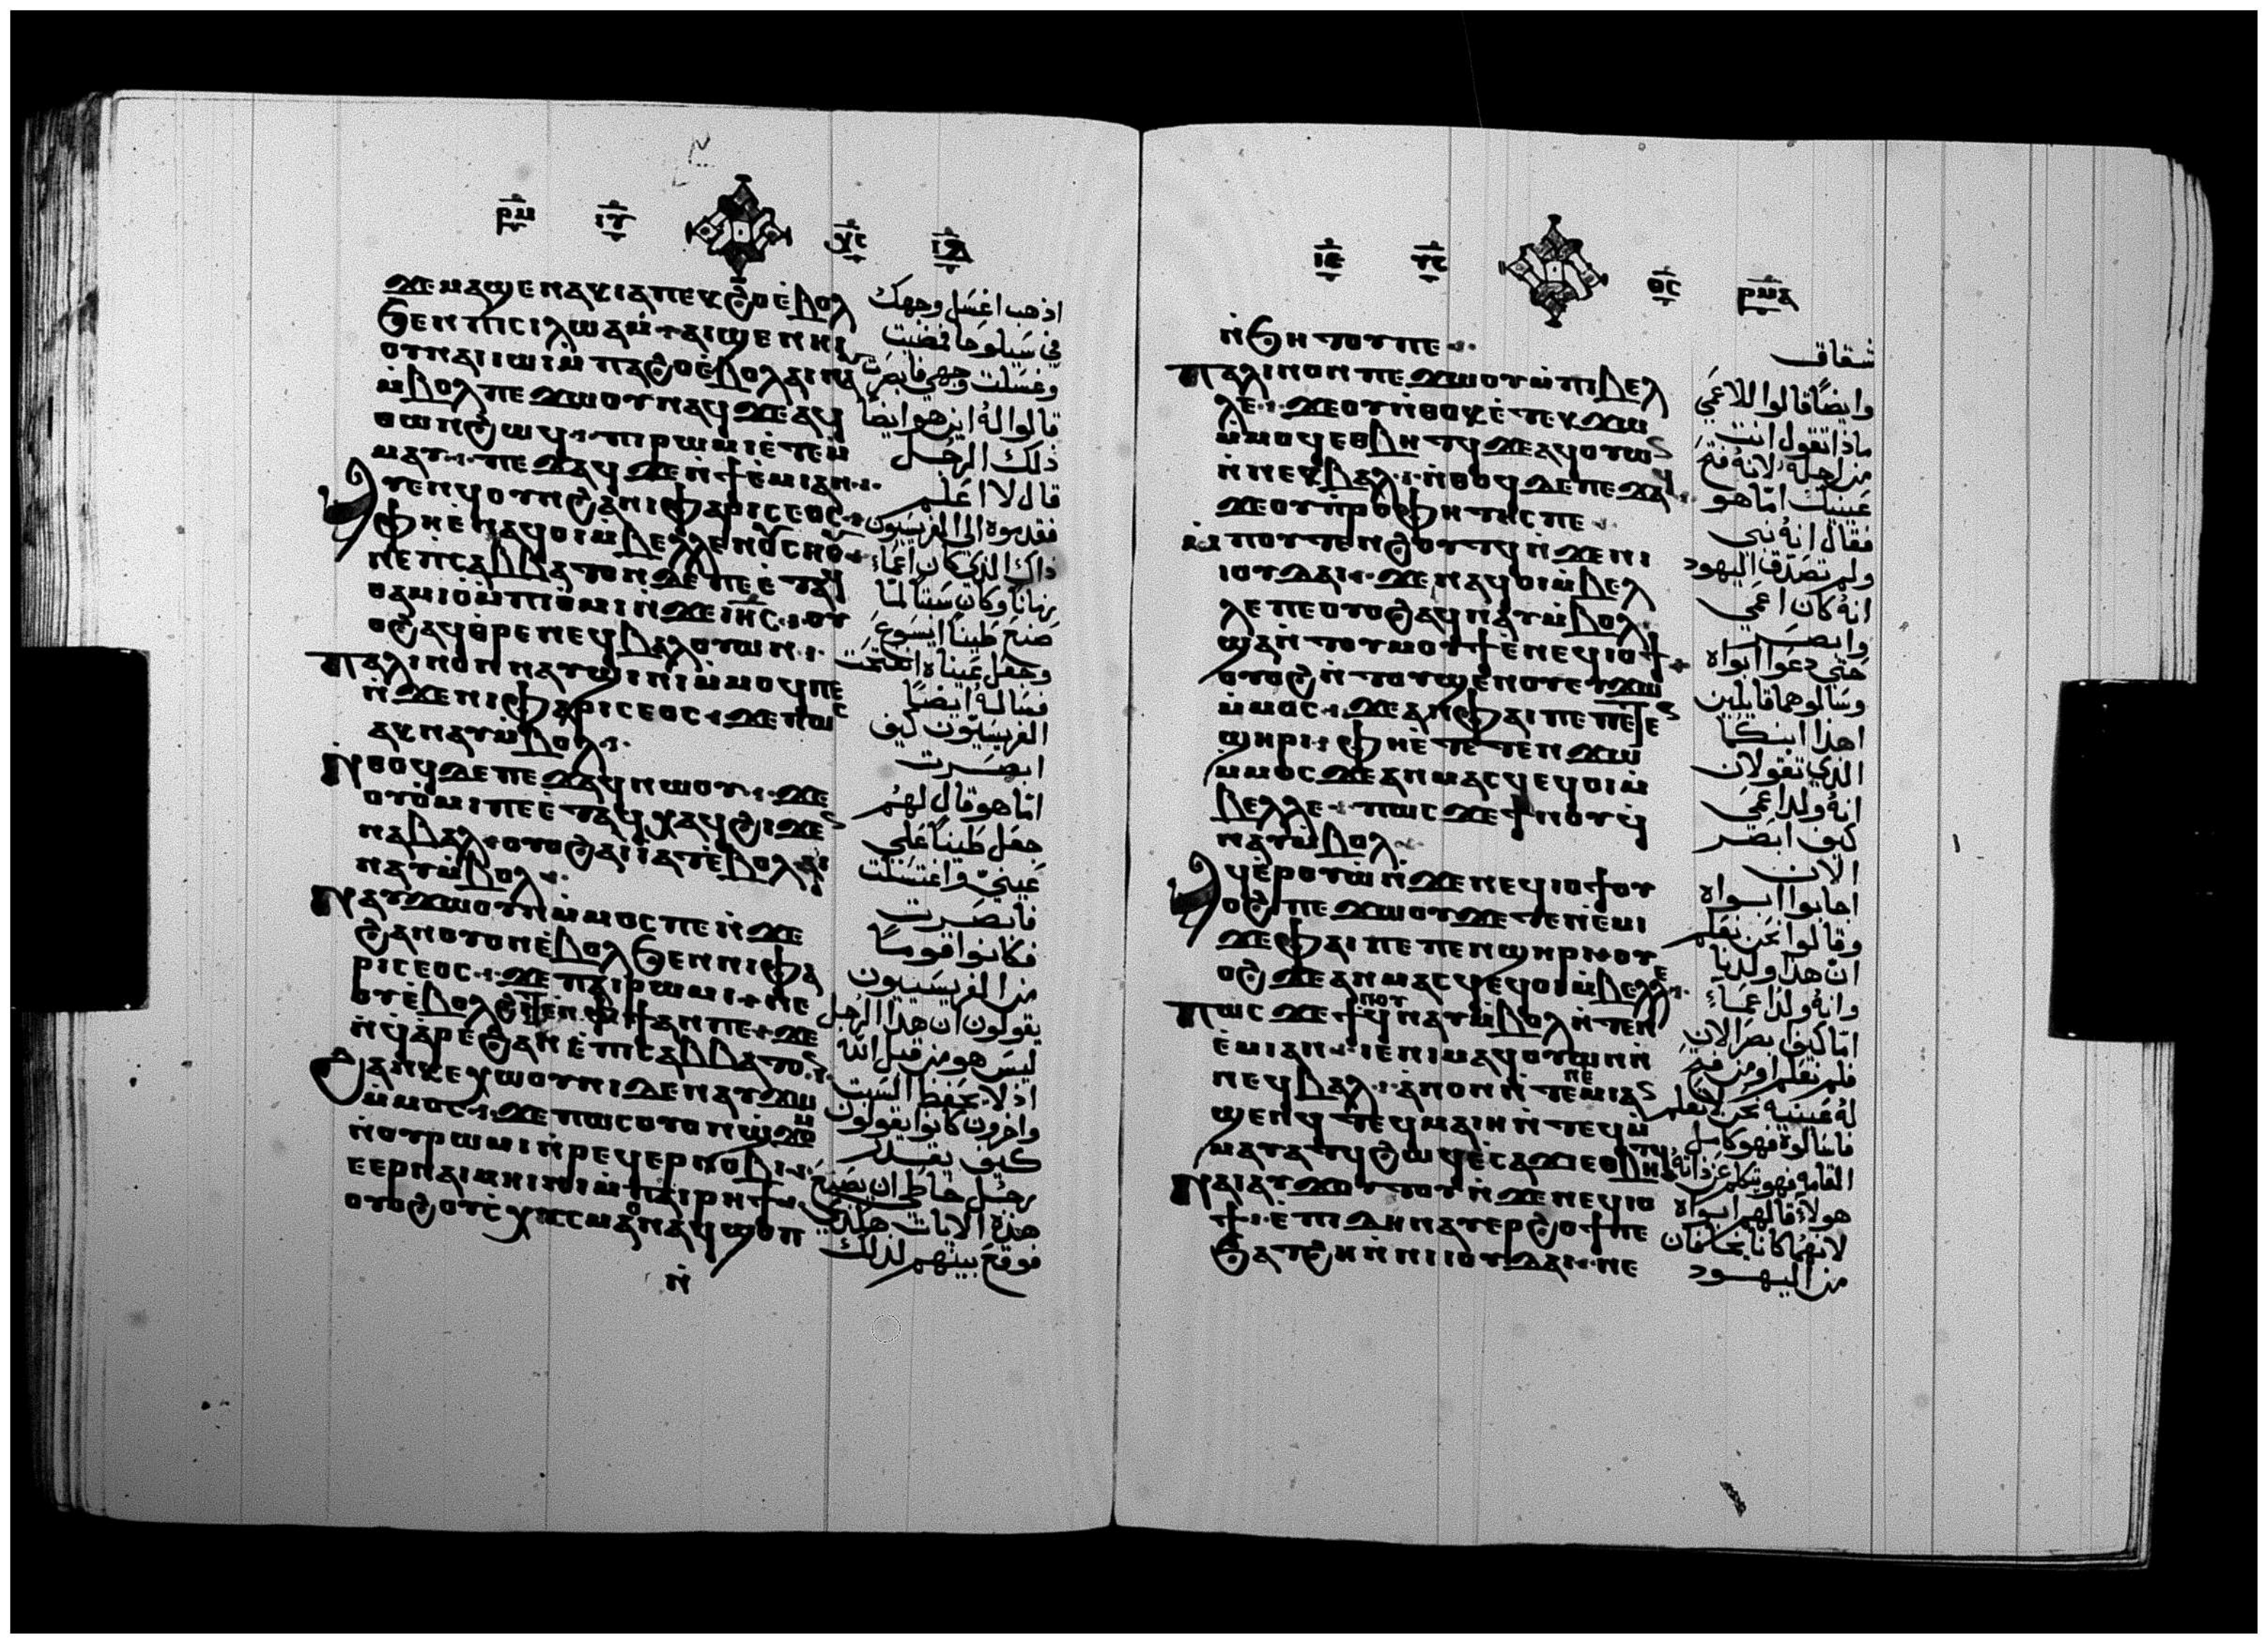 ⲣⲙ ⲓⲩ ⲭⲥ ⲓⲇ
ϫⲉⲙⲁϣⲉⲛⲁⲕⲓⲁⲡⲉⲕϩⲟⲉ̀ⲃⲟⲗ
ϧⲉⲛⲡⲥⲓⲗⲱⲁⲙ ⲁⲓϣⲉⲛⲏⲓ
ⲟⲩⲛⲁⲓⲓⲱⲓⲙ̀ⲡⲁϩⲟⲉ̀ⲃⲟⲗⲁⲓⲛⲁⲩ
ⲙ̀ⲃⲟⲗⲡⲉϫⲱⲟⲩⲛⲁϥϫⲉⲁϥ
ⲑⲱⲛϩⲱϥ ⲡⲓⲣⲱⲙⲓⲉ̀ⲧⲉⲙ
ⲙⲁⲩ ⲡⲉϫⲁϥϫⲉⲛϯⲉ̀ⲙⲓⲁⲛ
ⲁⲩⲉⲛϥⲟⲩⲛϩⲁⲛⲓⲫⲁⲣⲓⲥⲉⲟⲥ
ⲫⲏⲉ̀ⲛⲁϥⲟⲓⲙ̀ⲃⲉⲗⲗⲉⲛⲟⲩⲥⲏⲟⲩ
ⲛⲉⲡⲥⲁⲃⲃⲁⲧⲟⲛⲇⲉⲡⲉⲉ̀ⲧⲁϥ
ⲑⲁⲙⲓⲟ̀ⲙ̀ⲡⲓⲟ̀ⲙⲓⲛ̀ϫⲉⲓⲏⲥ ⲟⲩ
ⲟϩⲁϥⲑ̀ⲣⲉⲛⲉϥⲃⲁⲗⲟⲩⲱⲛ
ⲡⲁⲗⲓⲛⲟⲛⲛⲁⲩϣⲓⲛⲓⲙ̀ⲙⲟϥⲡⲉ
ⲛ̀ϫⲉⲛⲓⲫⲁⲣⲓⲥⲉⲟⲥ ϫⲉⲡⲱⲥ
ⲁⲕⲛⲁⲩⲙ̀ⲃⲟⲗ
ⲛ̀ⲑⲟϥⲇⲉⲡⲉϫⲁϥⲛⲱⲟⲩ ϫⲉ
ⲟⲩⲟ̀ⲙⲓⲡⲉⲉ̀ⲧⲁϥⲭⲁϥϩⲓϫⲉⲛ
ⲛⲁⲃⲁⲗ ⲟⲩⲟϩⲁⲓⲓⲁⲧⲉ̀ⲃⲟⲗⲁⲓ
ⲛⲁⲩⲙ̀ⲃⲟⲗ
ⲛⲁⲩϫⲱⲟⲩⲛⲙ̀ⲙⲟⲥⲡⲉⲛ̀ϫⲉ
ϩⲁⲛⲟⲩⲟⲛⲉ̀ⲃⲟⲗϧⲉⲛⲛⲓⲫⲁ
ⲣⲓⲥⲉⲟⲥ ϫⲉⲡⲁⲓⲣⲱⲙⲓ ⲛⲉ
ⲟⲩⲉ̀ⲃⲟⲗϩⲓⲧⲉⲛⲫϯⲁⲛⲡⲉ ϫⲉ
ⲛ̀ϥⲁ̀ⲣⲉϩⲁⲛⲉ̀ⲡⲥⲁⲃⲃⲁⲧⲟⲛ
ϩⲁⲛⲕⲉⲭⲱⲟⲩⲛⲓⲇⲉⲛⲁⲩϫⲱ
ⲙ̀ⲙⲟⲥ ϫⲉⲡⲱⲥⲟⲩⲟⲛϣ̀ϫⲟⲙ
ⲛ̀ⲟⲩⲣⲱⲙⲓⲛ̀ⲣⲉϥⲉⲣⲛⲟⲃⲓ
ⲉⲉⲣⲛⲁⲓⲙⲏⲓⲛⲓⲙ̀ⲡⲁⲓⲣⲏϯ
ⲟⲩⲟϩⲟⲩⲥ̀ⲭⲓⲥⲙⲁⲛⲁϥϣⲟⲡ
ⲛ̀
اذهب اغسل وجهك
في سيلوحا فمضيت
وغسلت وجهي فابصرت
قالوا له اين هو ايضا
ذلك الرجل
قال لا اعلم
فقدموه الى الفريسيون
ذاك الذي كان اعماء
زمانا وكان سبتا لما
صنع طينا ايسوع
وجعل عيناه انفتحت
فساله ايضا
الفريسيون كيف
ابصرت
اما هو قال لهم
جعل طينا على
عيني واغتسلت
فابصرت
فكانوا قوما
من الفريسيون
يقولون ان هذا الرجل
ليس هو من قبل الله
اذ لا يحفظ السبت
واخرون كانوا يقولون
كيف يقدر
رجل خاطي ان يصنع
هذه الايات هكذي
فوقع بينهم لذلك
ⲓⲉ ⲩⲥ ⲑⲥ ⲣⲙⲁ
ⲛ̀ϧⲏⲧⲟⲩⲡⲉ
ⲡⲁⲗⲓⲛⲟⲛⲡⲉϫⲱⲟⲩⲙ̀ⲡⲓⲃⲉⲗ
ⲗⲉ ϫⲉⲟⲩⲛ̀ⲑⲟⲕⲉ̀ⲧⲉⲕϫⲱ
ⲙ̀ⲙⲟϥⲉⲑⲃⲏⲧϥϫⲉⲁϥⲟⲩⲱⲛ
ⲛ̀ⲛⲉⲕⲃⲁⲗ ⲛ̀ⲑⲟϥⲇⲉⲡⲉϫⲁϥ
ϫⲉⲟⲩⲡ̀ⲣⲟⲫⲏⲧⲏⲥⲡⲉ
ⲙ̀ⲡⲟⲩⲧⲉⲛϩⲟⲩⲧϥⲛ̀ϫⲉⲛⲓ
ⲓⲟⲩⲇⲁⲓ ϫⲉⲛⲁϥⲟⲓⲙ̀ⲃⲉⲗ
ⲗⲉⲡⲉⲟⲩⲟϩⲁϥⲛⲁⲩⲙ̀ⲃⲟⲗ
ϣⲁⲛ̀ⲧⲟⲩⲙⲟⲩϯⲉ̀ⲛⲉϥⲓⲟϯ
ⲟⲩⲟϩⲛ̀ⲧⲟⲩϣⲉⲛⲟⲩⲉⲩϫⲱ
ⲙ̀ⲙⲟⲥ ϫⲉⲁⲛⲫⲁⲓⲡⲉⲡⲉⲧⲉⲛ
ϣⲏⲣⲓ ⲫⲏⲉ̀ⲧⲉⲧⲉⲛϫⲱ
ⲙ̀ⲙⲟⲥϫⲉⲁⲛⲙⲁⲥϥⲉϥⲟⲓⲙ̀
ⲃⲉⲗⲗⲉ ⲡⲱⲥϫⲉϯⲛⲟⲩϥ̀
ⲛⲁⲩⲙ̀ⲃⲟⲗ
ⲁϥⲉ̀ⲣⲟⲩⲱⲛ̀ϫⲉⲛⲉϥⲓⲟϯⲟⲩ
ⲟϩⲡⲉϫⲱⲟⲩϫⲉⲧⲉⲛⲉ̀ⲙⲓ
ϫⲉⲫⲁⲓⲡⲉⲡⲉⲛϣⲏⲣⲓ ⲟⲩ
ⲟϩϫⲉⲁⲛⲙⲁⲥϥⲉϥⲟⲓⲙ̀ⲃⲉⲗⲗⲉ
ⲡⲱⲥϫⲉϯⲛⲟⲩϥⲛⲁⲩⲙ̀ⲃⲟⲗⲛ̀ⲧⲉⲛ
ⲉ̀ⲙⲓⲁⲛ ⲓⲉⲛⲓⲙⲁϥⲟⲩⲱⲛⲛ̀
ⲛⲉϥⲃⲁⲗ ⲁ̀ⲛⲟⲛⲛ̀ⲧⲉⲛⲉⲙⲓⲁⲛ
ϣⲉⲛϥⲧⲉϥⲙⲁⲓⲏⲛ̀ⲧⲉϥⲙ̀
ⲙⲁⲩⲁⲧϥϩⲱϥⲉ̀ⲥⲁϫⲓⲉⲑⲃⲏⲧϥ
ⲛⲁⲓⲁⲩϫⲟⲩⲧⲟⲩⲛ̀ϫⲉⲛⲉϥⲓⲟ
ϯ ⲉ̀ⲡⲓⲇⲏⲛⲁⲩⲉⲣϩⲟϯⲡⲉ
ϧⲁⲧϩⲏⲛ̀ⲛⲓⲓⲟⲩⲇⲁⲓ ⲛⲉ
شقاق
وايضا قالوا للاعمي
ماذا تقول انت
من اجله لانه فتح
عينيك اما هو
فقال انه نبي
ولم تصدق اليهود
انه كان اعمي
وابصر
حتي دعوا ابواه
وسالوهما قايلين
اهذا ابنكما
الذي تقولان
انه ولد اعمي
كيف ابصر
الان
اجابوا ابواه
وقالوا نحن نعلم
ان هذا ولدنا
وانه ولد اعماء
اما كيف ابصر الان
فلم نعلم او من فتح
له عينيه نحن لا نعلم
فاسالوه فهو كامل
القامه فهو يتكلم عن ذاته
هولاء قالهم ابواه
لانهما كانا يخافان
من اليهود